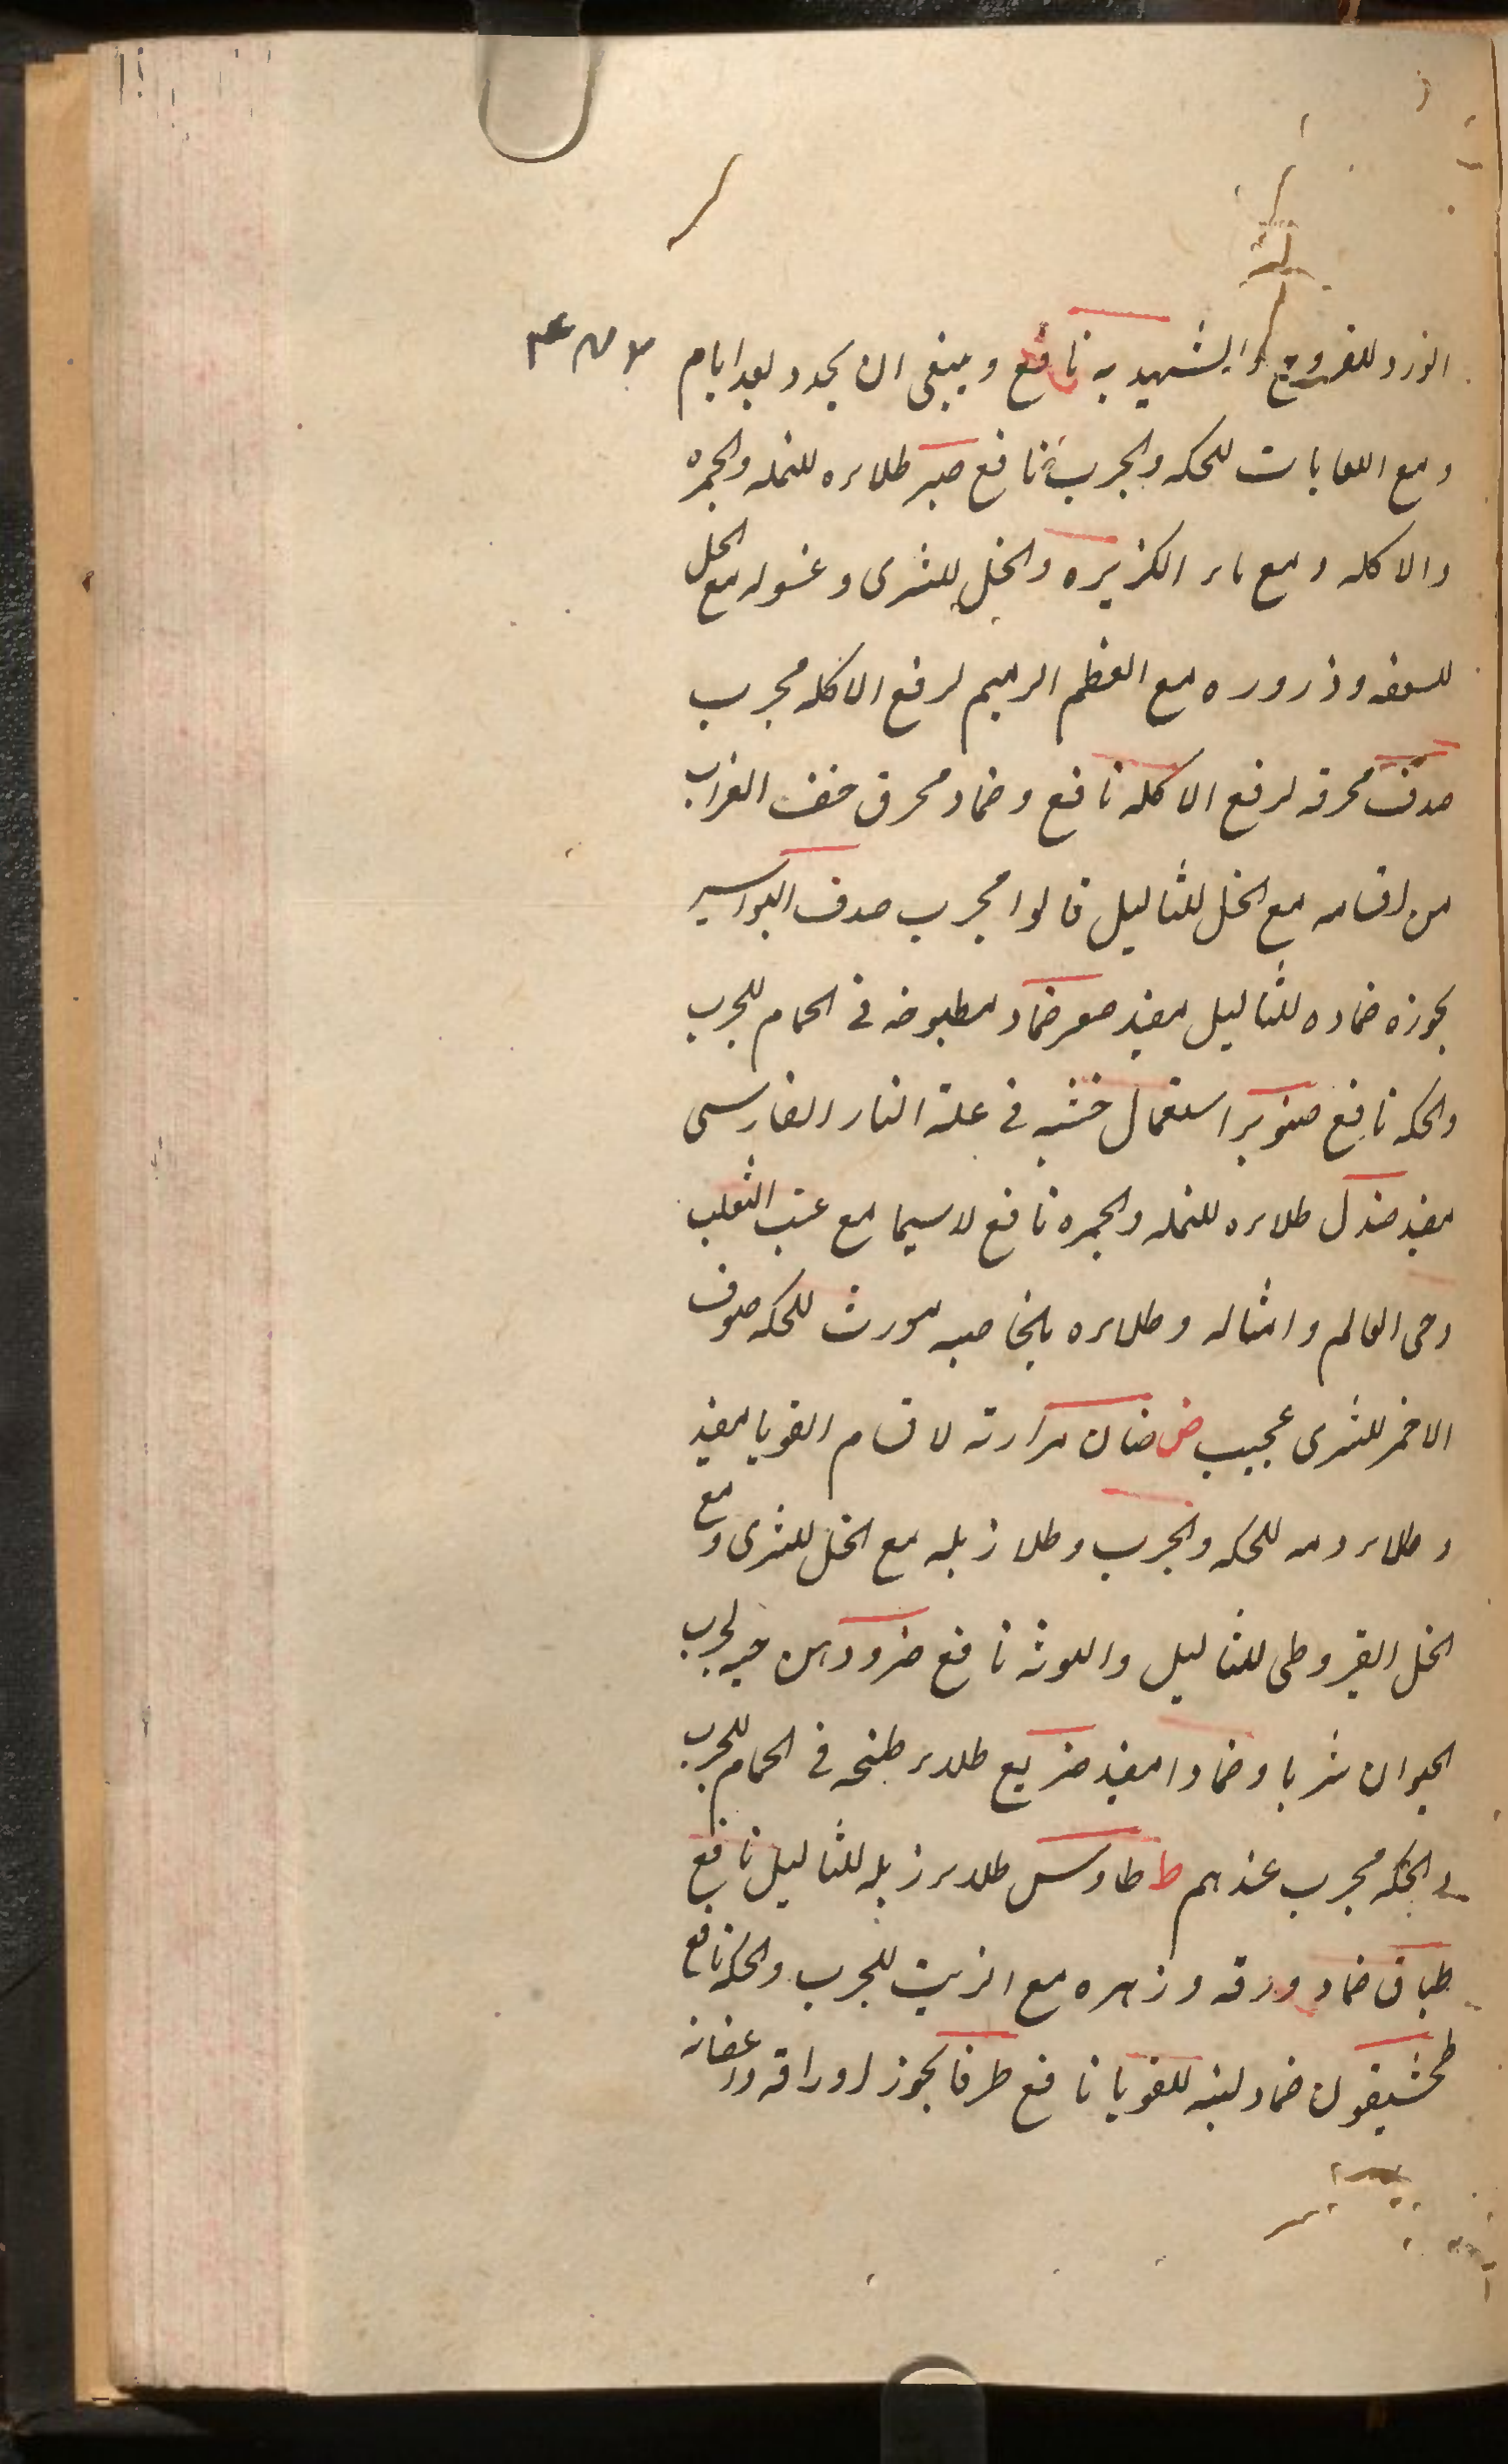 الورد للقروح والشهيد به نافع وينبغى ان يجدد بعد ايام
ومع اللعابات للحكه والجرب نافع صبر طلاءه للنمله والجمره
والاكله ومع ماء الكزبره والخل للشرى وغسوله مع الخل
للسعفه وذروره مع العظم الرميم لرفع الاكله مجرب
صدف محرقه لرفع الاكله نافع وضماد محرق صنف الفراب
من اقسامه مع الخل للثاليل قالوا مجرب صدف البواسير
بخوره ضماده للثاليل مفيد صعتر ضماد مطبوخه فى الحمام للجرب
والحكه نافع صنوبر استعمال خشبه فى علة النار الفارسى
مفيد صندل طلاءه للنمله والجمره نافع لاسيما مع عنب الثعلب
وحى العالم وامثاله وطلاءه بالخاصيه مورث للحكه صوف
الاخمر للشرى عجيب ض ضان مرارته لاقسام القوبا مفيد
وطلاء دمه للحكه والجرب وطلا زبله مع الخل للشرى ومع
الخل القيروطى للثاليل واللوثه نافع ضرو دهن حبه لجرب
الحيوان شربا وضمادا مفيد ضريع طلاء طبخه فى الحمام للجرب
والحكه مجرب عندهم ط طاوس طلاء زبله للثاليل نافع
طباق ضماد ورقه وزهره مع الزيت للجرب والحكه نافع
طخشيقون ضماد لبنه للقوبا نافع طرفا بخور اوراقه